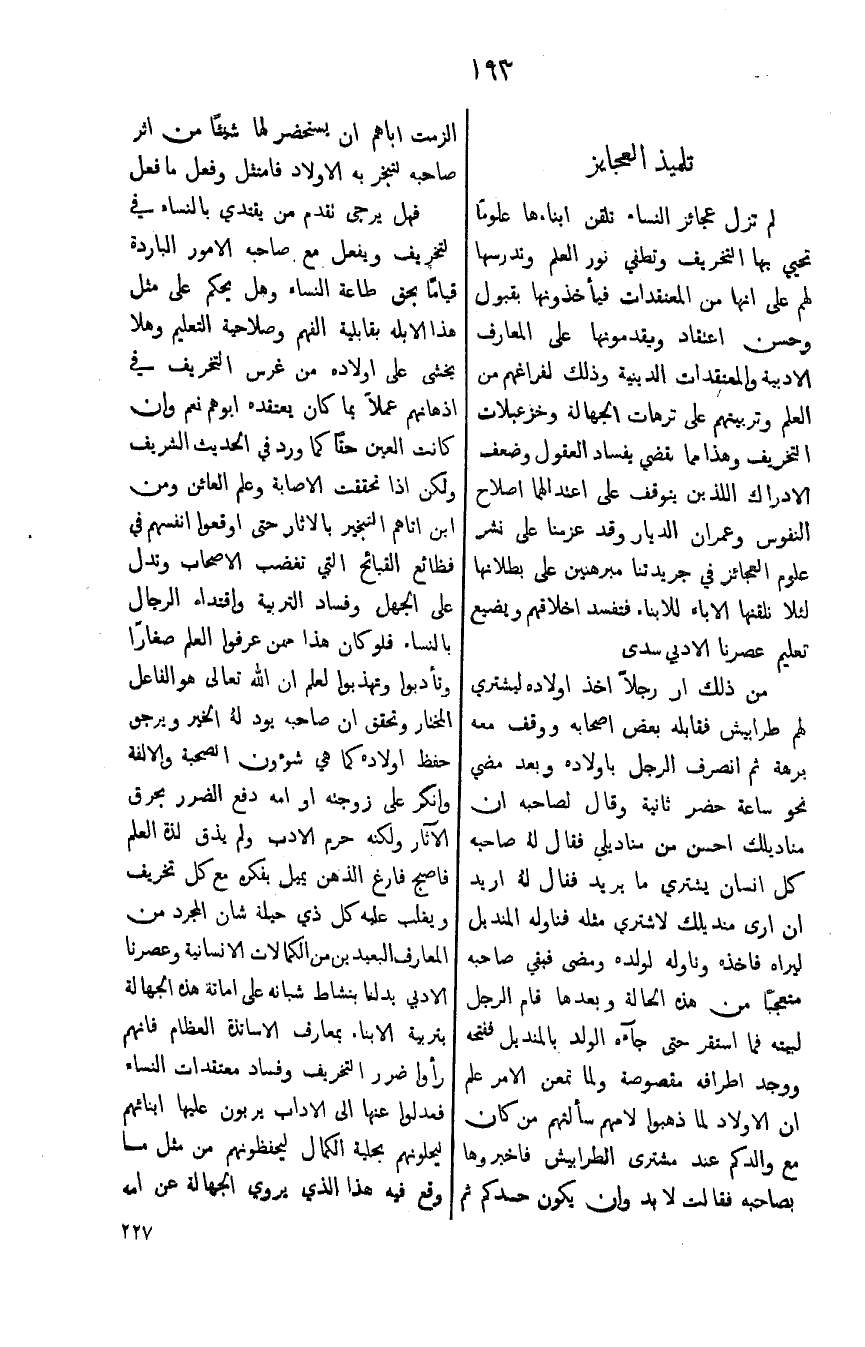 ١٩٣
تلميذ العجايز
لم تزل عجائز النساء تلقن ابناءها علومًا
تحيي بها التخريف وتطفي نور العلم وتدرسها
لهم على انها من المعتقدات فيأخذونها بقبول
وحسن اعتقاد ويقدمونها على المعارف
الادبية والمعتقدات الدينية وذلك لفراغهم من
العلم وتربيتهم على ترهات الجهالة وخزعبلات
التخريف وهذا مما يقضي بفساد العقول وضعف
الادراك اللذين يتوقف على اعتدالهما اصلاح
النفوس وعمران الديار وقد عزمنا على نشر
علوم العجائز في جريدتنا مبرهنين على بطلانها
لئلا تلقنها الاباء للابناء فتفسد اخلاقهم ويضيع
تعليم عصرنا الادبي سدى
من ذلك ان رجلاً اخذ اولاده ليشتري
لهم طرابيش فقابله بعض اصحابه ووقف معه
برهة ثم انصرف الرجل باولاده وبعد مضي
نحو ساعة حضر ثانية وقال لصاحبه ان
مناديلك احسن من مناديلي فقال لهُ صاحبه
كل انسان يشتري ما يريد فقال لهُ اريد
ان ارى منديلك لاشتري مثله فناوله المنديل
ليراه فاخذه وناوله لولده ومضى فبقي صاحبه
متعجبًا من هذه الحالة وبعدها قام الرجل
لبيته فما استقر حتى جآءه الولد بالمنديل ففتحه
ووجد اطرافه مقصوصة ولما تمعن الامر علم
ان الاولاد لما ذهبوا لامهم سألتهم من كان
مع والدكم عند مشترى الطرابيش فاخبروها
بصاحبه فقالت لا بد وان يكون حسدكم ثم
الزمت اباهم ان يستحضر لها شيئًا من اثر
صاحبه لتبخر به الاولاد فامتثل وفعل ما فعل
فهل يرجى تقدم من يقتدي بالنساء في
التخريف ويفعل مع صاحبه الامور الباردة
قيامًا بحق طاعة النساء وهل يحكم على مثل
هذا الابله بقابلية الفهم وصلاحية التعليم وهلا
يخشى على اولاده من غرس التخريف في
اذهانهم عملاً بما كان يعتقده ابوهم نعم وان
كانت العين حقًا كما ورد في الحديث الشريف
ولكن اذا تحققت الاصابة وعلم العائن ومن
اين اتاهم التبخير بالاثار حتى اوقعوا انفسهم في
فظائع القبائح التي تغضب الاصحاب وتدل
على الجهل وفساد التربية واقتداء الرجال
بالنساء فلو كان هذا ممن عرفوا العلم صغارًا
وتأدبوا وتهذبوا لعلم ان الله تعالى هو الفاعل
المختار وتحقق ان صاحبه يود لهُ الخير ويرجو
حفظ اولاده كما هي شوءون الصحبة والالفة
وانكر على زوجته او امه دفع الضرر بحرق
الآثار ولكنه حرم الادب ولم يذق لذة العلم
فاصبح فارغ الذهن يميل بفكره مع كل تخريف
ويغلب عليه كل ذي حيلة شان المجرد من
المعارف البعيد بن من الكمالات الانسانية وعصرنا
الادبي يدلنا بنشاط شبانه على اماتة هذه الجهالة
بتربية الابناء بمعارف الاساتذة العظام فانهم
رأوا ضرر التخريف وفساد معتقدات النساء
فعدلوا عنها الى الاداب يربون عليها ابنائهم
ليحلونهم بحلية الكمال ليحفظونهم من مثل ما
وقع فيه هذا الذي يروي الجهالة عن امه
٢٢٧